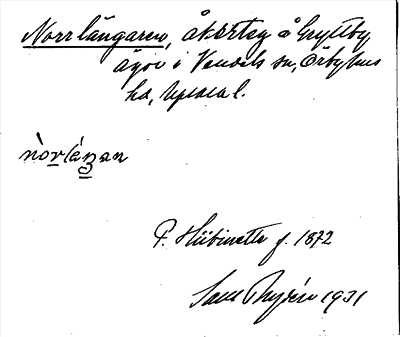 Norrlängaren, åkerteg å Gryttby
ägor i Vendels sn, Örbyhus
hd, Uppsala l.
nòrléŋan
P. Hübinette f. 1872
1931